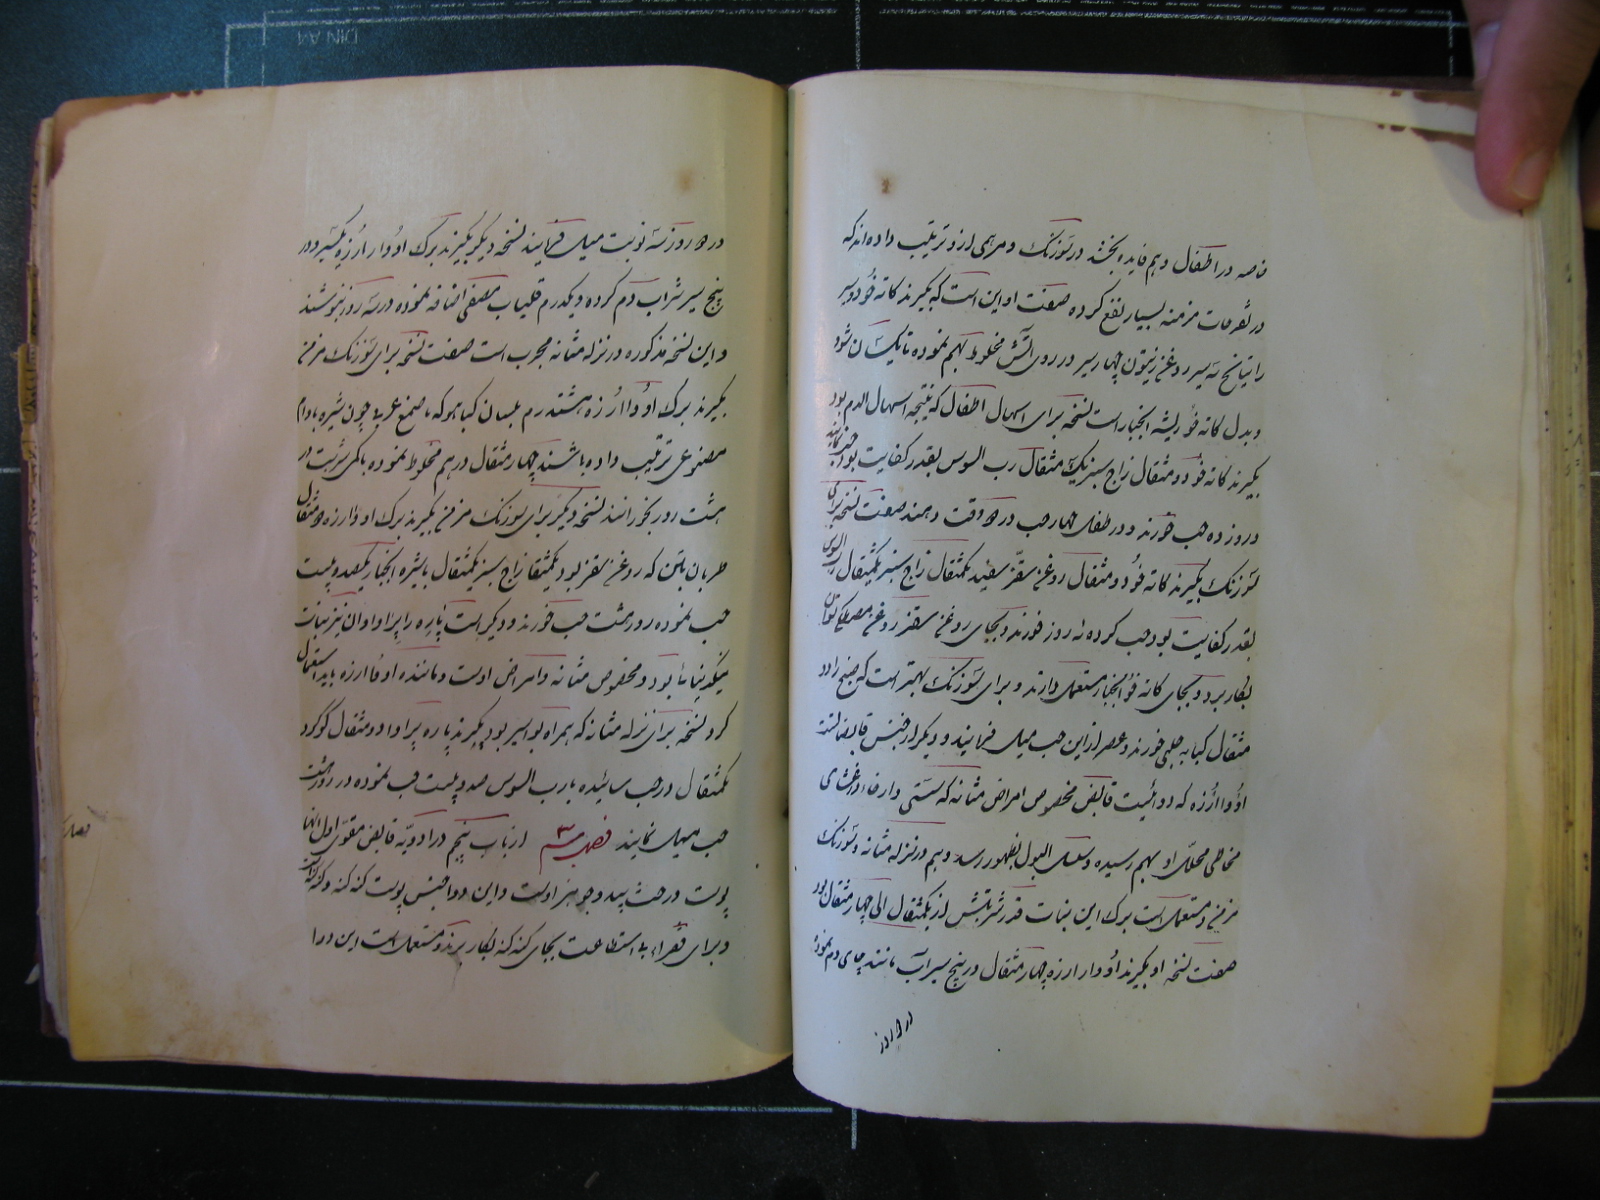 خاصه در اطفال و هم فایده بخشد در سوزنک و مرهمی از او ترتیب داده‌اند که
در قرحات مزمنه بسیار نفع کرده صفت او این است که بگیرند کاته فودو سیر
راتیانج سه سیر روغن زیتون چهار سیر در روی آتش مخلوط بهم نموده تا یکسان شود
و بدل کاته فو ریشه انجبار است نسخه برای اسهال اطفال که نتیجه اسهال الدم بود
بگیرند کاته فو دو مثقال زاج سبز یک مثقال رب السوس بقدر کفایت بوده حب نمایند
در روز ده حب خورند و در طفل چهار حب در دو وقت دهند صفت نسخه برای
سوزنک بگیرند کاته فو دو مثقال روغن سقز سفید یکمثقال زاج سبز یکمثقال رب السوس
بقدر کفایت بود حب کرده نه روز خورند و بجای روغن سقز روغن مصطکی توان
بکار برد و بجای کاته فو انجبار مستعمل دارند و برای سوزنک بهتر است که صبح را دو
مثقال کبابه چینی خورند و عصر از این حب میل فرمایند و دیگر از جنس قابضات است
او وا ارزه که دوائیست قابض مخصوص امراض مثانه که سستی و ارخاء در غشای
مخاطی محلی او بهم رسیده و سلس البول بظهور رسد و هم در نزله مثانه و سوزنک
مزمن و مستعمل است برک این نبات قدر شربتش از یکمثقال الی چهار مثقال بود
صفت نسخه او بگیرند او وار ارزه چهار مثقال در پنج سیر آب مانند چای دم نموده
در دو روز
در دو روز سه نوبت میل فرمایند نسخه دیگر بگیرند برک او وار ارزه یکسیر و در
پنج سیر شراب دم کرده و یکدرم قلیاب مصفی اضافه نموده در سه روز بنوشند
و این نسخه مذکوره در نزله مثانه مجرب است صفت نسخه برای سوزنک مزمن
بگیرند برک او وا ارزه هشتدرم بلسان کپاهو که با صمغ عربی چون شیره بادام
مصنوعی ترتیب داده باشند چهار مثقال درهم مخلوط نموده باکمی شربت در
هشت روز بخورانند نسخه دیگر برای سوزنک مزمن بگیرند برک او وا ارزه دو مثقال
طربان بتن که روغن سقز بود یکمثقال زاج سبز یکمثقال با شیره انجبار یکصد و بیست
حب نموده روز هشت حب خورند و دیگر است پاره را پراوا و آن نیز نبات
ینکی دنیائی بود و مخصوص مثانه و امراض اوست و ماننده او وا ارزه باید استعمال
کرد نسخه برای نزله مثانه که همراه بواسیر بود بگیرند پاره پراوا دو مثقال گوگرد
یکمثقال در حب سائیده با رب السوس صد و بیست حب نموده در روز هشت
حب میل نمایند فصل سیم از باب پنجم در ادویه قابض مقوی اول آنها
پوست درخت بید و جوهر اوست و این دوا جنس پوست کنه کنه و کنکینه
و برای فقراء بی استطاعت بجای کنه کنه بکار برند و مستعمل است این دوا